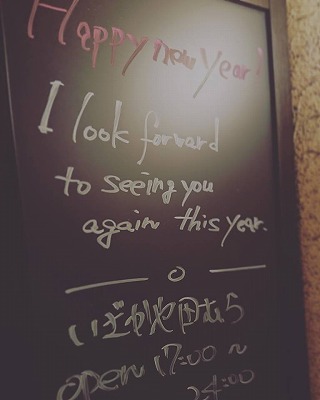 Happy new Year!
I look forward
to seeing you
again this year.
いざかや田むら
open 17:00 ~
24:00